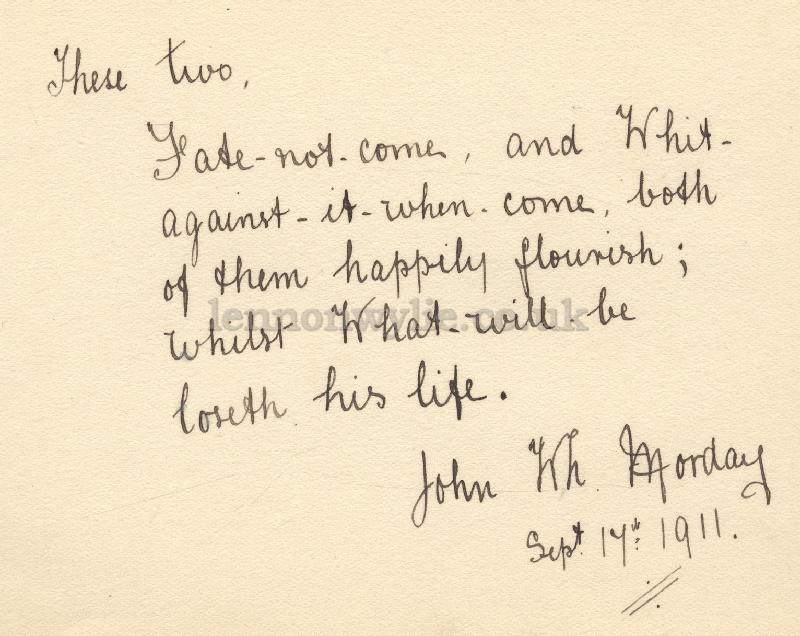 These two,
Fate-not-come, and Whit-
against-it-when-come, both
of them happily flourish;
lennonwylie.co.uk
whilst What-will-be
loseth his life.
John Wh. Morday
Sept 17th 1911.